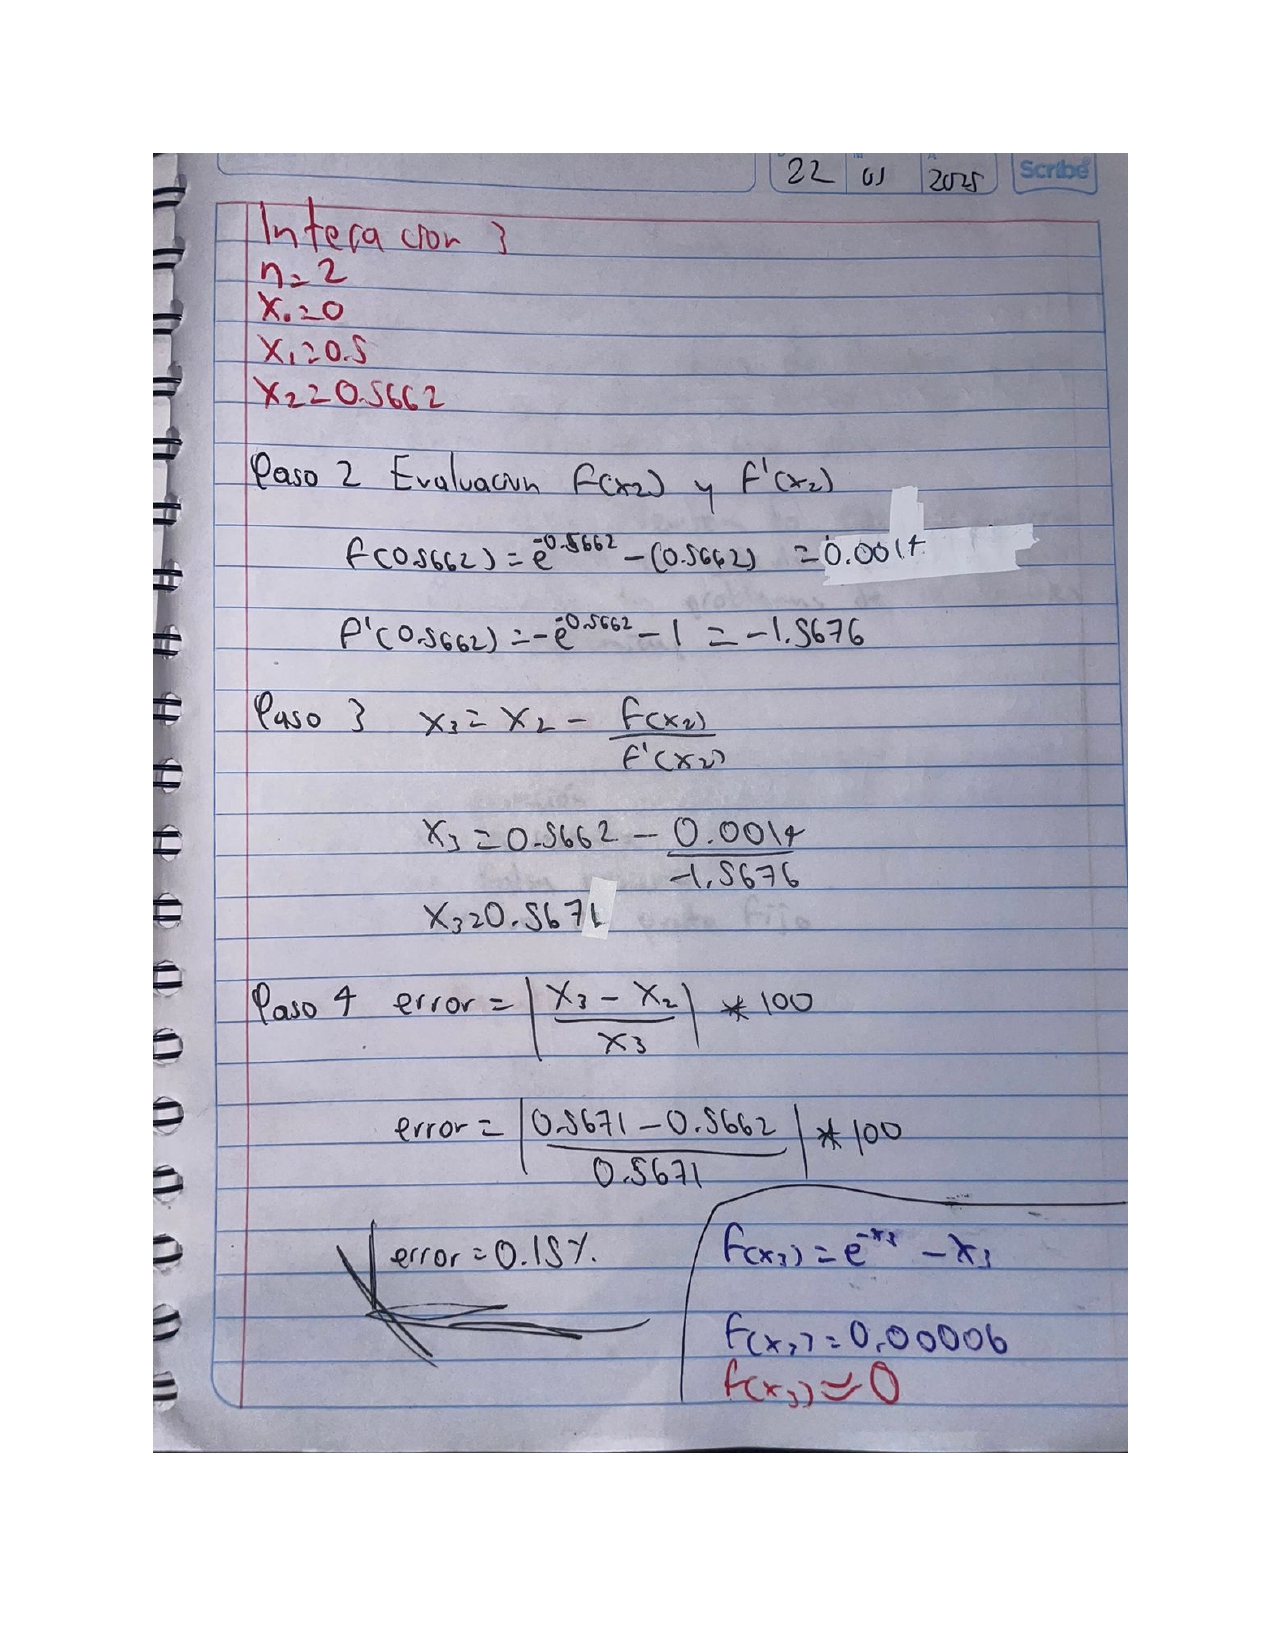 22 01 2025 Scribe
Interacion 3
n=2
x₀=0
x₁=0.5
x₂=0.5662
Paso 2 Evaluacion f(x₂) y f'(x₂)
f(0.5662)=e^-0.5662 -(0.5662) =0.0014
f'(0.5662)=-e^-0.5662 -1 =-1.5676
Paso 3 x₃=x₂ - f(x₂)/f'(x₂)
x₃=0.5662 - 0.0014/-1.5676
x₃=0.5671
Paso 4 error=|x₃-x₂/x₃| * 100
error=|0.5671-0.5662/0.5671| * 100
error=0.15%.
f(x₃)=e^-x₃ -x₃
f(x₃)=0.00006
f(x₃)≈0